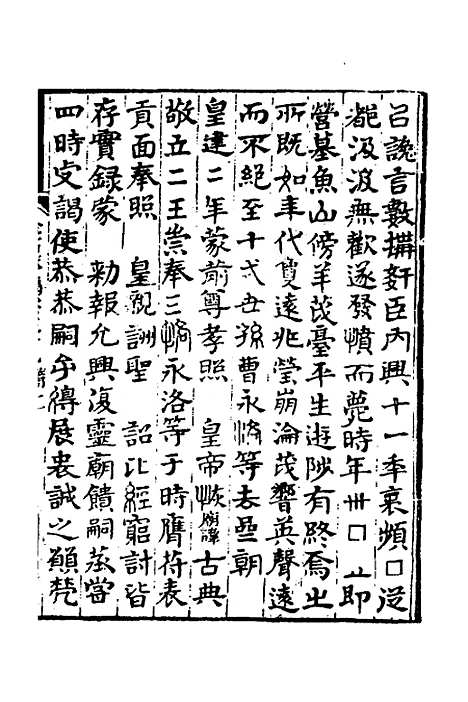 呂讒言數搆奸臣内興十一季裏頻□迋
都汲汲無歡遂發憤而薨時年卌□一即
營墓魚山傍羊茂臺平生遊陟有終焉之
所既如年代夐遠兆塋崩淪茂響英聲遠
而不絕至十弌世孫曹永洛等去曁朝
皇建二年蒙前尊孝照　皇帝恢廟諱古典
敬五二王崇奉三恪永洛等于時膺符表
貢面奉照　皇親詶聖　詔比經窮討皆
存實録蒙　勑報允興復靈廟饋嗣蒸嘗
四時虔謁使恭恭嗣𡥉得展衷誠之願凳